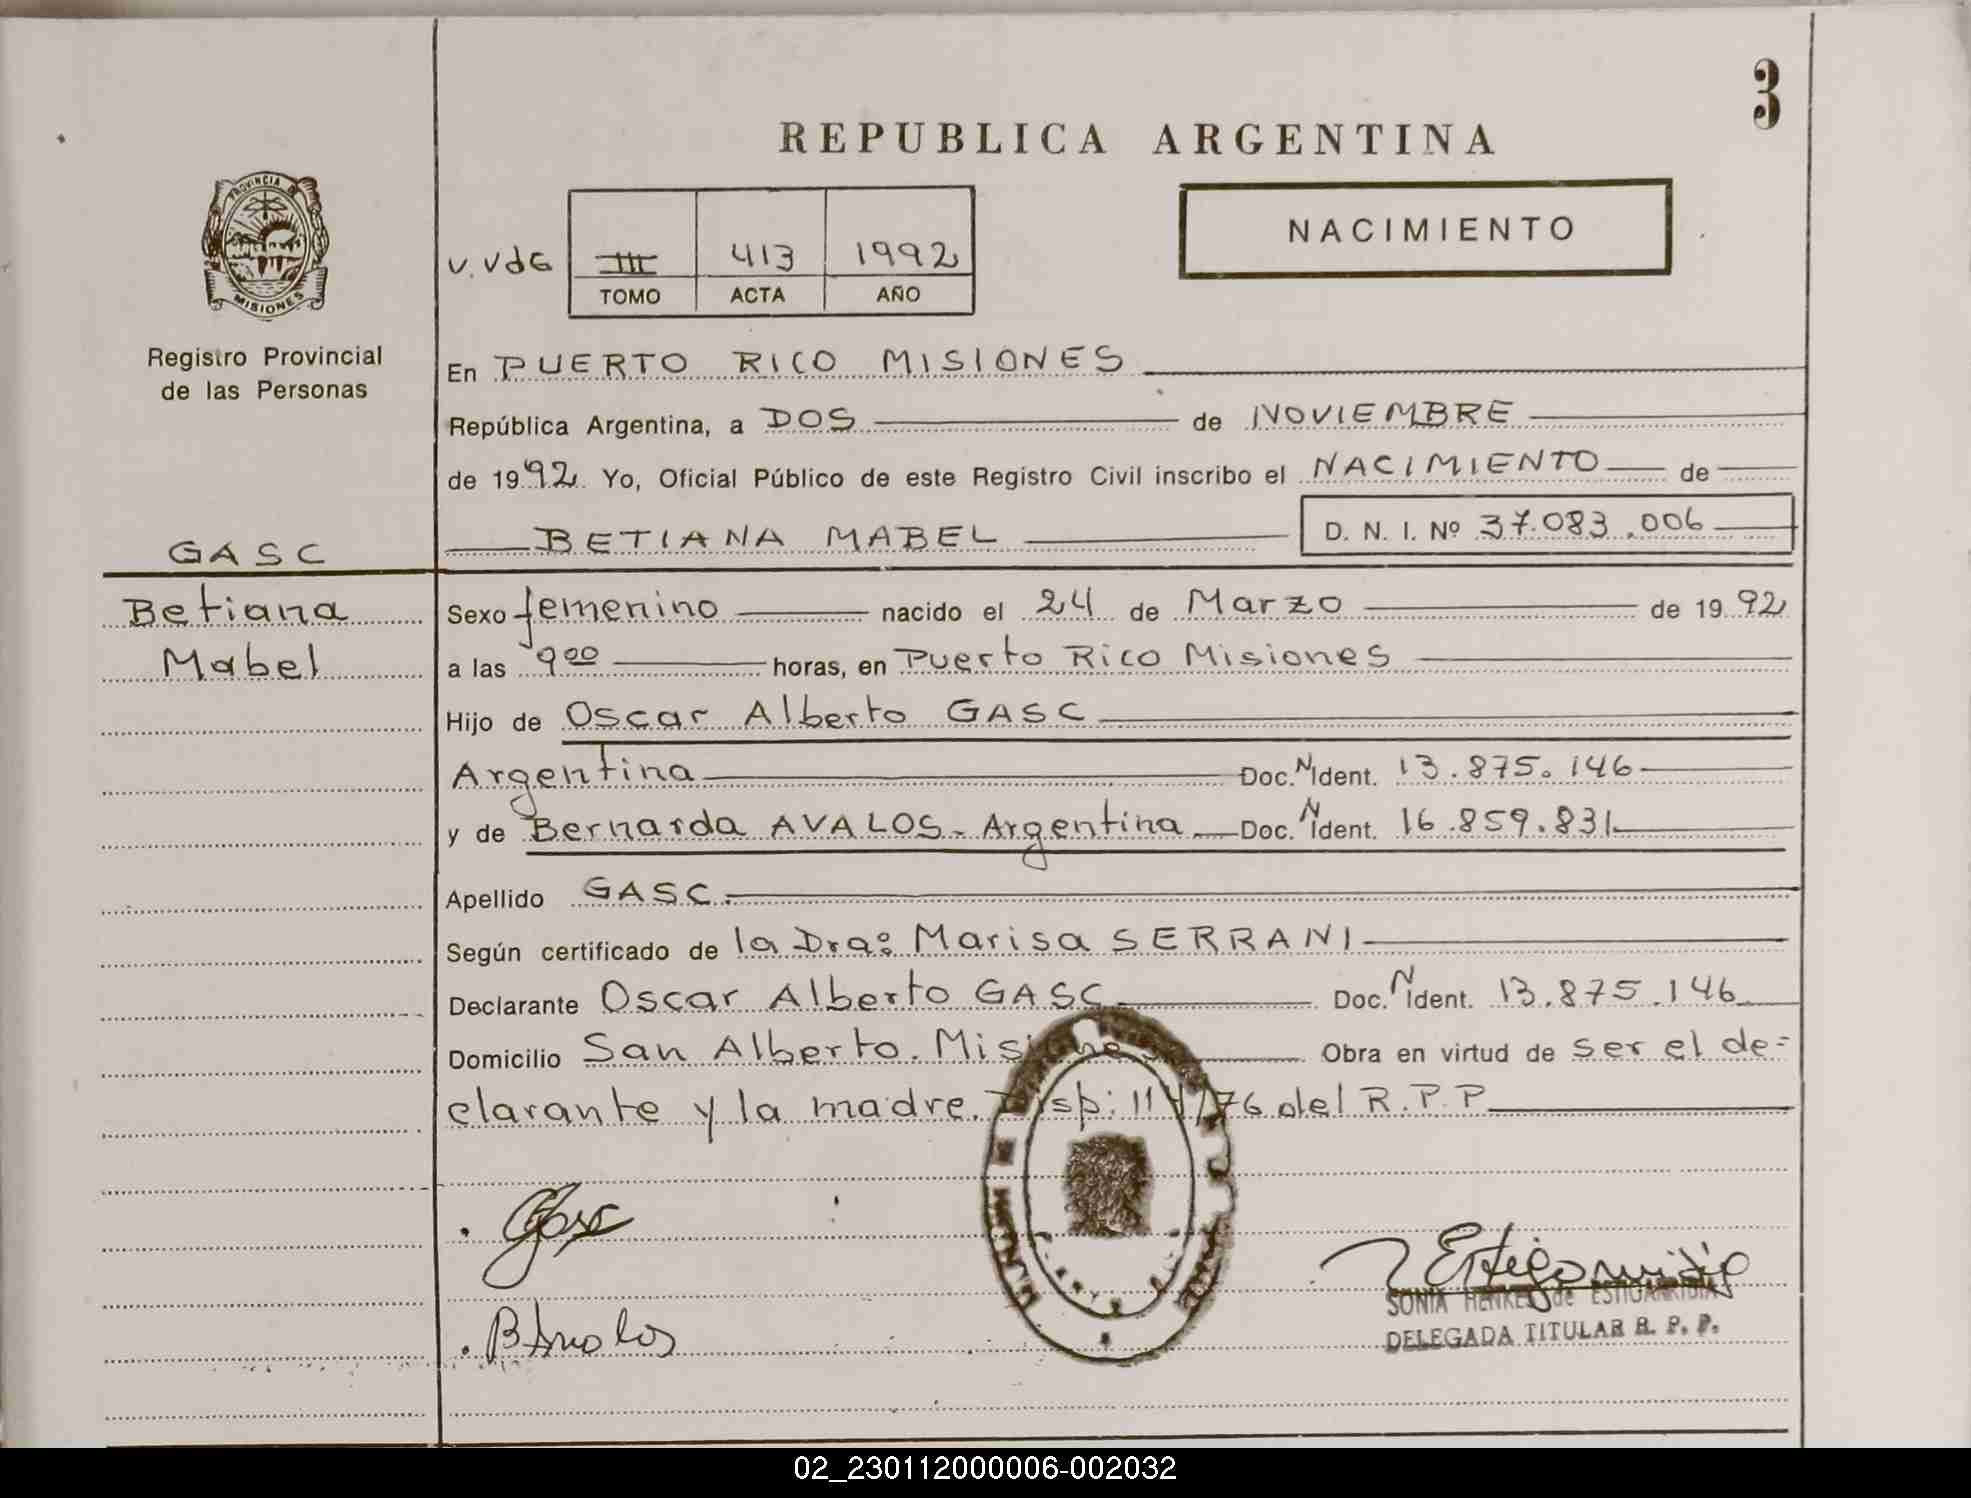 3
REPUBLICA ARGENTINA
PROVINCIA DE
MISIONES
Registro Provincial
de las Personas
V.VdG III 413 1992
TOMO ACTA AÑO
NACIMIENTO
En PUERTO RICO MISIONES
República Argentina, a DOS de NOVIEMBRE
de 1992 Yo, Oficial Público de este Registro Civil inscribo el NACIMIENTO de
BETIANA MABEL D. N. I. Nº 37.083.006
GASC
Betiana
Mabel
Sexo femenino nacido el 24 de Marzo de 1992
a las 9 00 horas, en Puerto Rico Misiones
Hijo de Oscar Alberto GASC
Argentina Doc. N Ident. 13.875.146
y de Bernarda AVALOS - Argentina Doc. N Ident. 16.859.831
Apellido GASC.
Según certificado de la Dra: Marisa SERRANI
Declarante Oscar Alberto GASC Doc. N Ident. 13.875.146
Domicilio San Alberto. Misiones Obra en virtud de ser el de=
clarante y la madre. Disp: 114/76 del R.P.P
Gasc
BAvalos
Estigarribia
SONIA HENKES de ESTIGARRIBIA
DELEGADA TITULAR R. P. P.
02_230112000006-002032